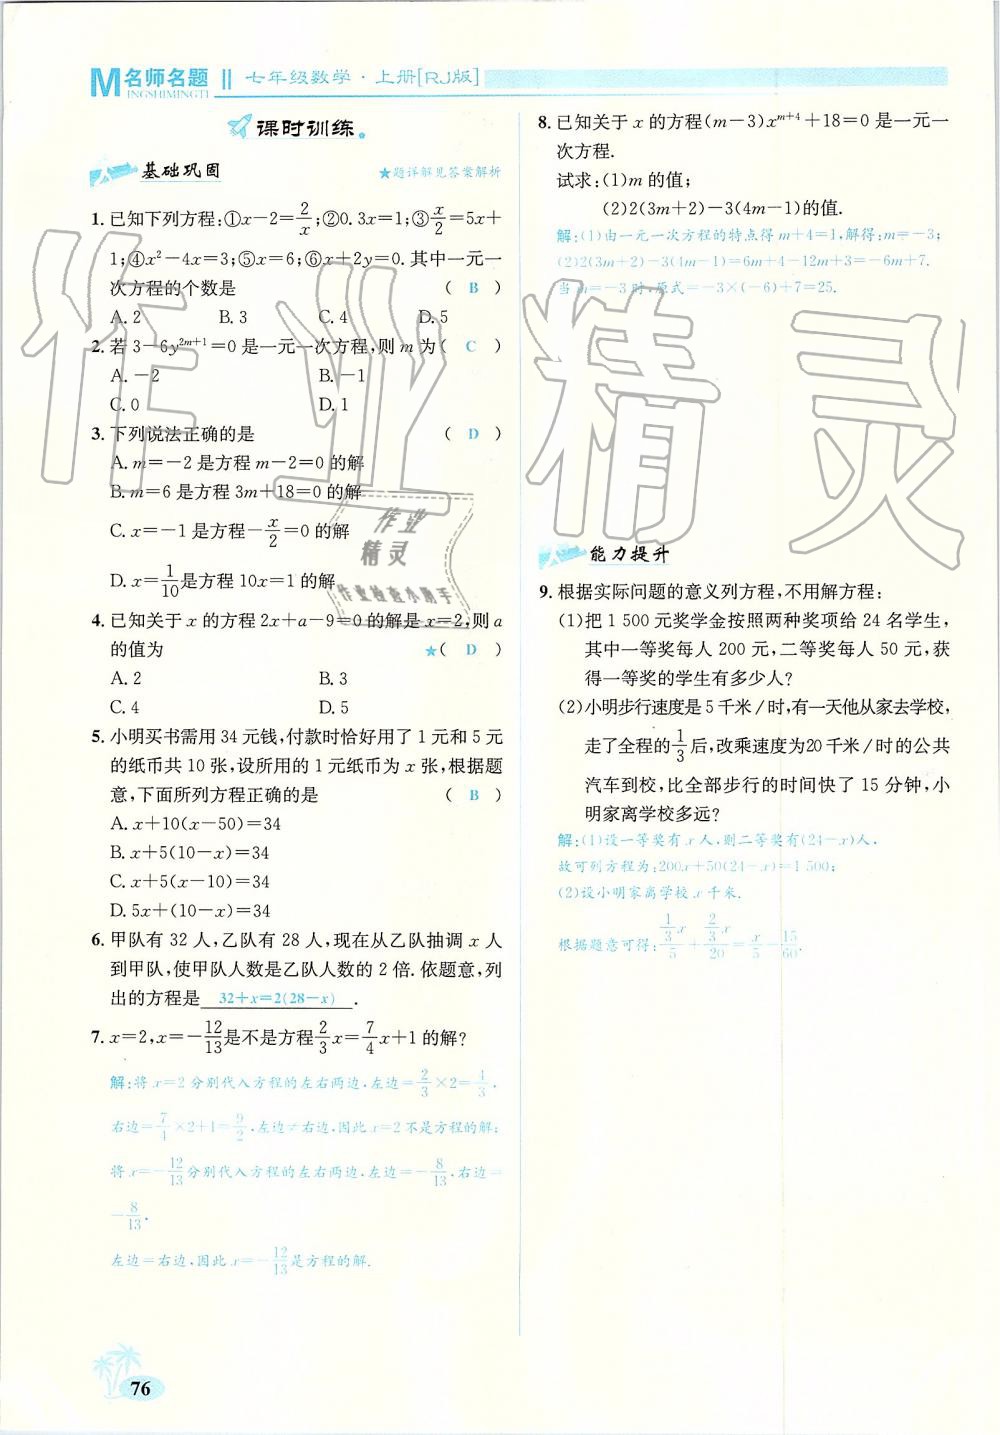 M名师名题 ‖ 七年级数学·上册[RJ版]
INGSHIMINGTI
课时训练
基础巩固
★题详解见答案解析
1. 已知下列方程:①x-2=2/x;②0.3x=1;③x/2=5x+
1;④x²-4x=3;⑤x=6;⑥x+2y=0.其中一元一
次方程的个数是 ( B )
A.2 B.3 C.4 D.5
2. 若3-6y^{2m+1}=0是一元一次方程,则m为( C )
A.-2 B.-1
C.0 D.1
3. 下列说法正确的是 ( D )
A.m=-2是方程m-2=0的解
B.m=6是方程3m+18=0的解
C.x=-1是方程-x/2=0的解
D.x=1/10是方程10x=1的解
4. 已知关于x的方程2x+a-9=0的解是x=2,则a
的值为 ★( D )
A.2 B.3
C.4 D.5
5. 小明买书需用34元钱,付款时恰好用了1元和5元
的纸币共10张,设所用的1元纸币为x张,根据题
意,下面所列方程正确的是 ( B )
A.x+10(x-50)=34
B.x+5(10-x)=34
C.x+5(x-10)=34
D.5x+(10-x)=34
6. 甲队有32人,乙队有28人,现在从乙队抽调x人
到甲队,使甲队人数是乙队人数的2倍.依题意,列
出的方程是 32+x=2(28-x) .
7. x=2,x=-12/13是不是方程2/3x=7/4x+1的解?
解:将x=2分别代入方程的左右两边,左边=2/3×2=4/3,
右边=7/4×2+1=9/2,左边≠右边,因此x=2不是方程的解;
将x=-12/13分别代入方程的左右两边,左边=-8/13,右边=
-8/13.
左边=右边,因此x=-12/13是方程的解.
76
8. 已知关于x的方程(m-3)x^{m+4}+18=0是一元一
次方程.
试求:(1)m的值;
(2)2(3m+2)-3(4m-1)的值.
解:(1)由一元一次方程的特点得m+4=1,解得:m=-3;
(2)2(3m+2)-3(4m-1)=6m+4-12m+3=-6m+7.
当m=-3时,原式=-3×(-6)+7=25.
能力提升
9. 根据实际问题的意义列方程,不用解方程:
(1)把1 500元奖学金按照两种奖项给24名学生,
其中一等奖每人200元,二等奖每人50元,获
得一等奖的学生有多少人?
(2)小明步行速度是5千米/时,有一天他从家去学校,
走了全程的1/3后,改乘速度为20千米/时的公共
汽车到校,比全部步行的时间快了15分钟,小
明家离学校多远?
解:(1)设一等奖有x人,则二等奖有(24-x)人,
故可列方程为:200x+50(24-x)=1 500;
(2)设小明家离学校x千米.
根据题意可得:(1/3x)/5+(2/3x)/20=x/5-15/60.
作业精灵
作业
精灵
作业检查小助手